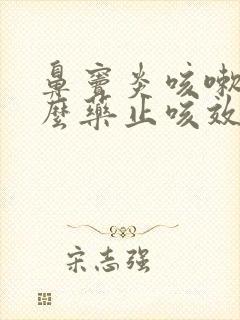 鼻窦炎咳嗽
麼藥止咳效
宋志强